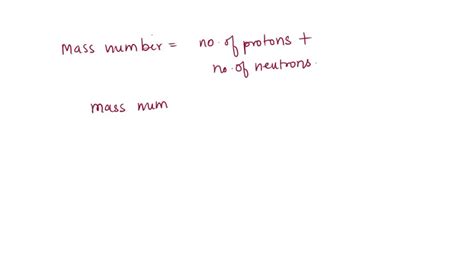 Mass number = no. of protons +
no. of neutrons.
mass num